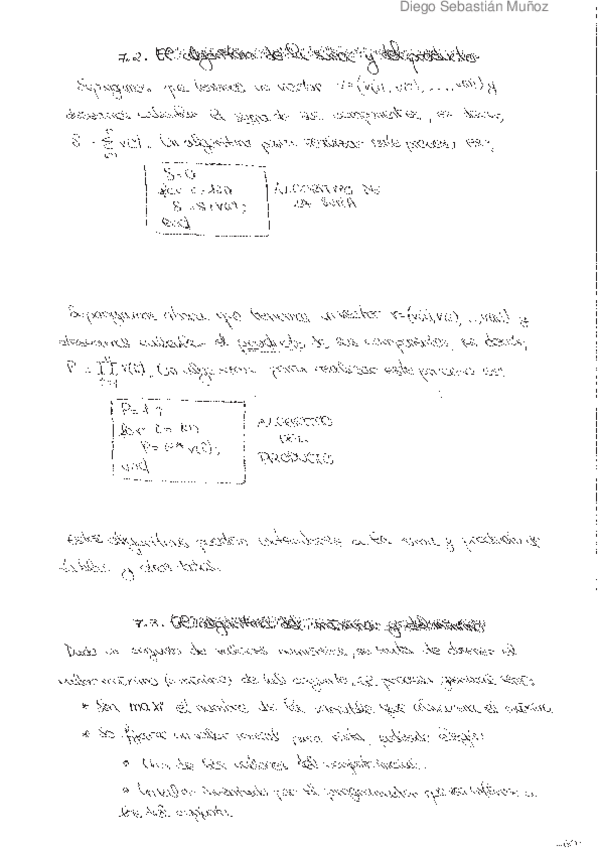 Diego Sebastián Muñoz
7.2. El algoritmo de la suma y del producto
Supongamos que tenemos un vector v=(v(1), v(2), ..., v(n)) y
deseamos calcular el de sus componentes, es decir,
S = Σ v(i). Un algoritmo para realizar este proceso es:
S=0
for i=1:n
S=S+v(i);
end
ALGORITMO DE
LA SUMA
Supongamos ahora que tenemos un vector v=(v(1), v(2), ..., v(n)) y
deseamos calcular el producto de sus componentes, es decir,
P = ∏ v(i). Un algoritmo para realizar este proceso es:
P=1;
for i=1:n
P=P*v(i);
end
ALGORITMO
DEL
PRODUCTO
Estos algoritmos pueden extenderse a la suma y producto de
y
7.3. El algoritmo del máximo y del mínimo
Dado un conjunto de valores numéricos, se trata de obtener el
valor máximo (o mínimo) de tal conjunto. El proceso general es:
* Sea maxi el nombre de la variable que almacena el máximo.
* Se fijará un valor inicial para ésta, pudiendo elegir:
* Uno de los valores del conjunto inicial.
* Un valor inventado por el programador que sea inferior a
los del conjunto.